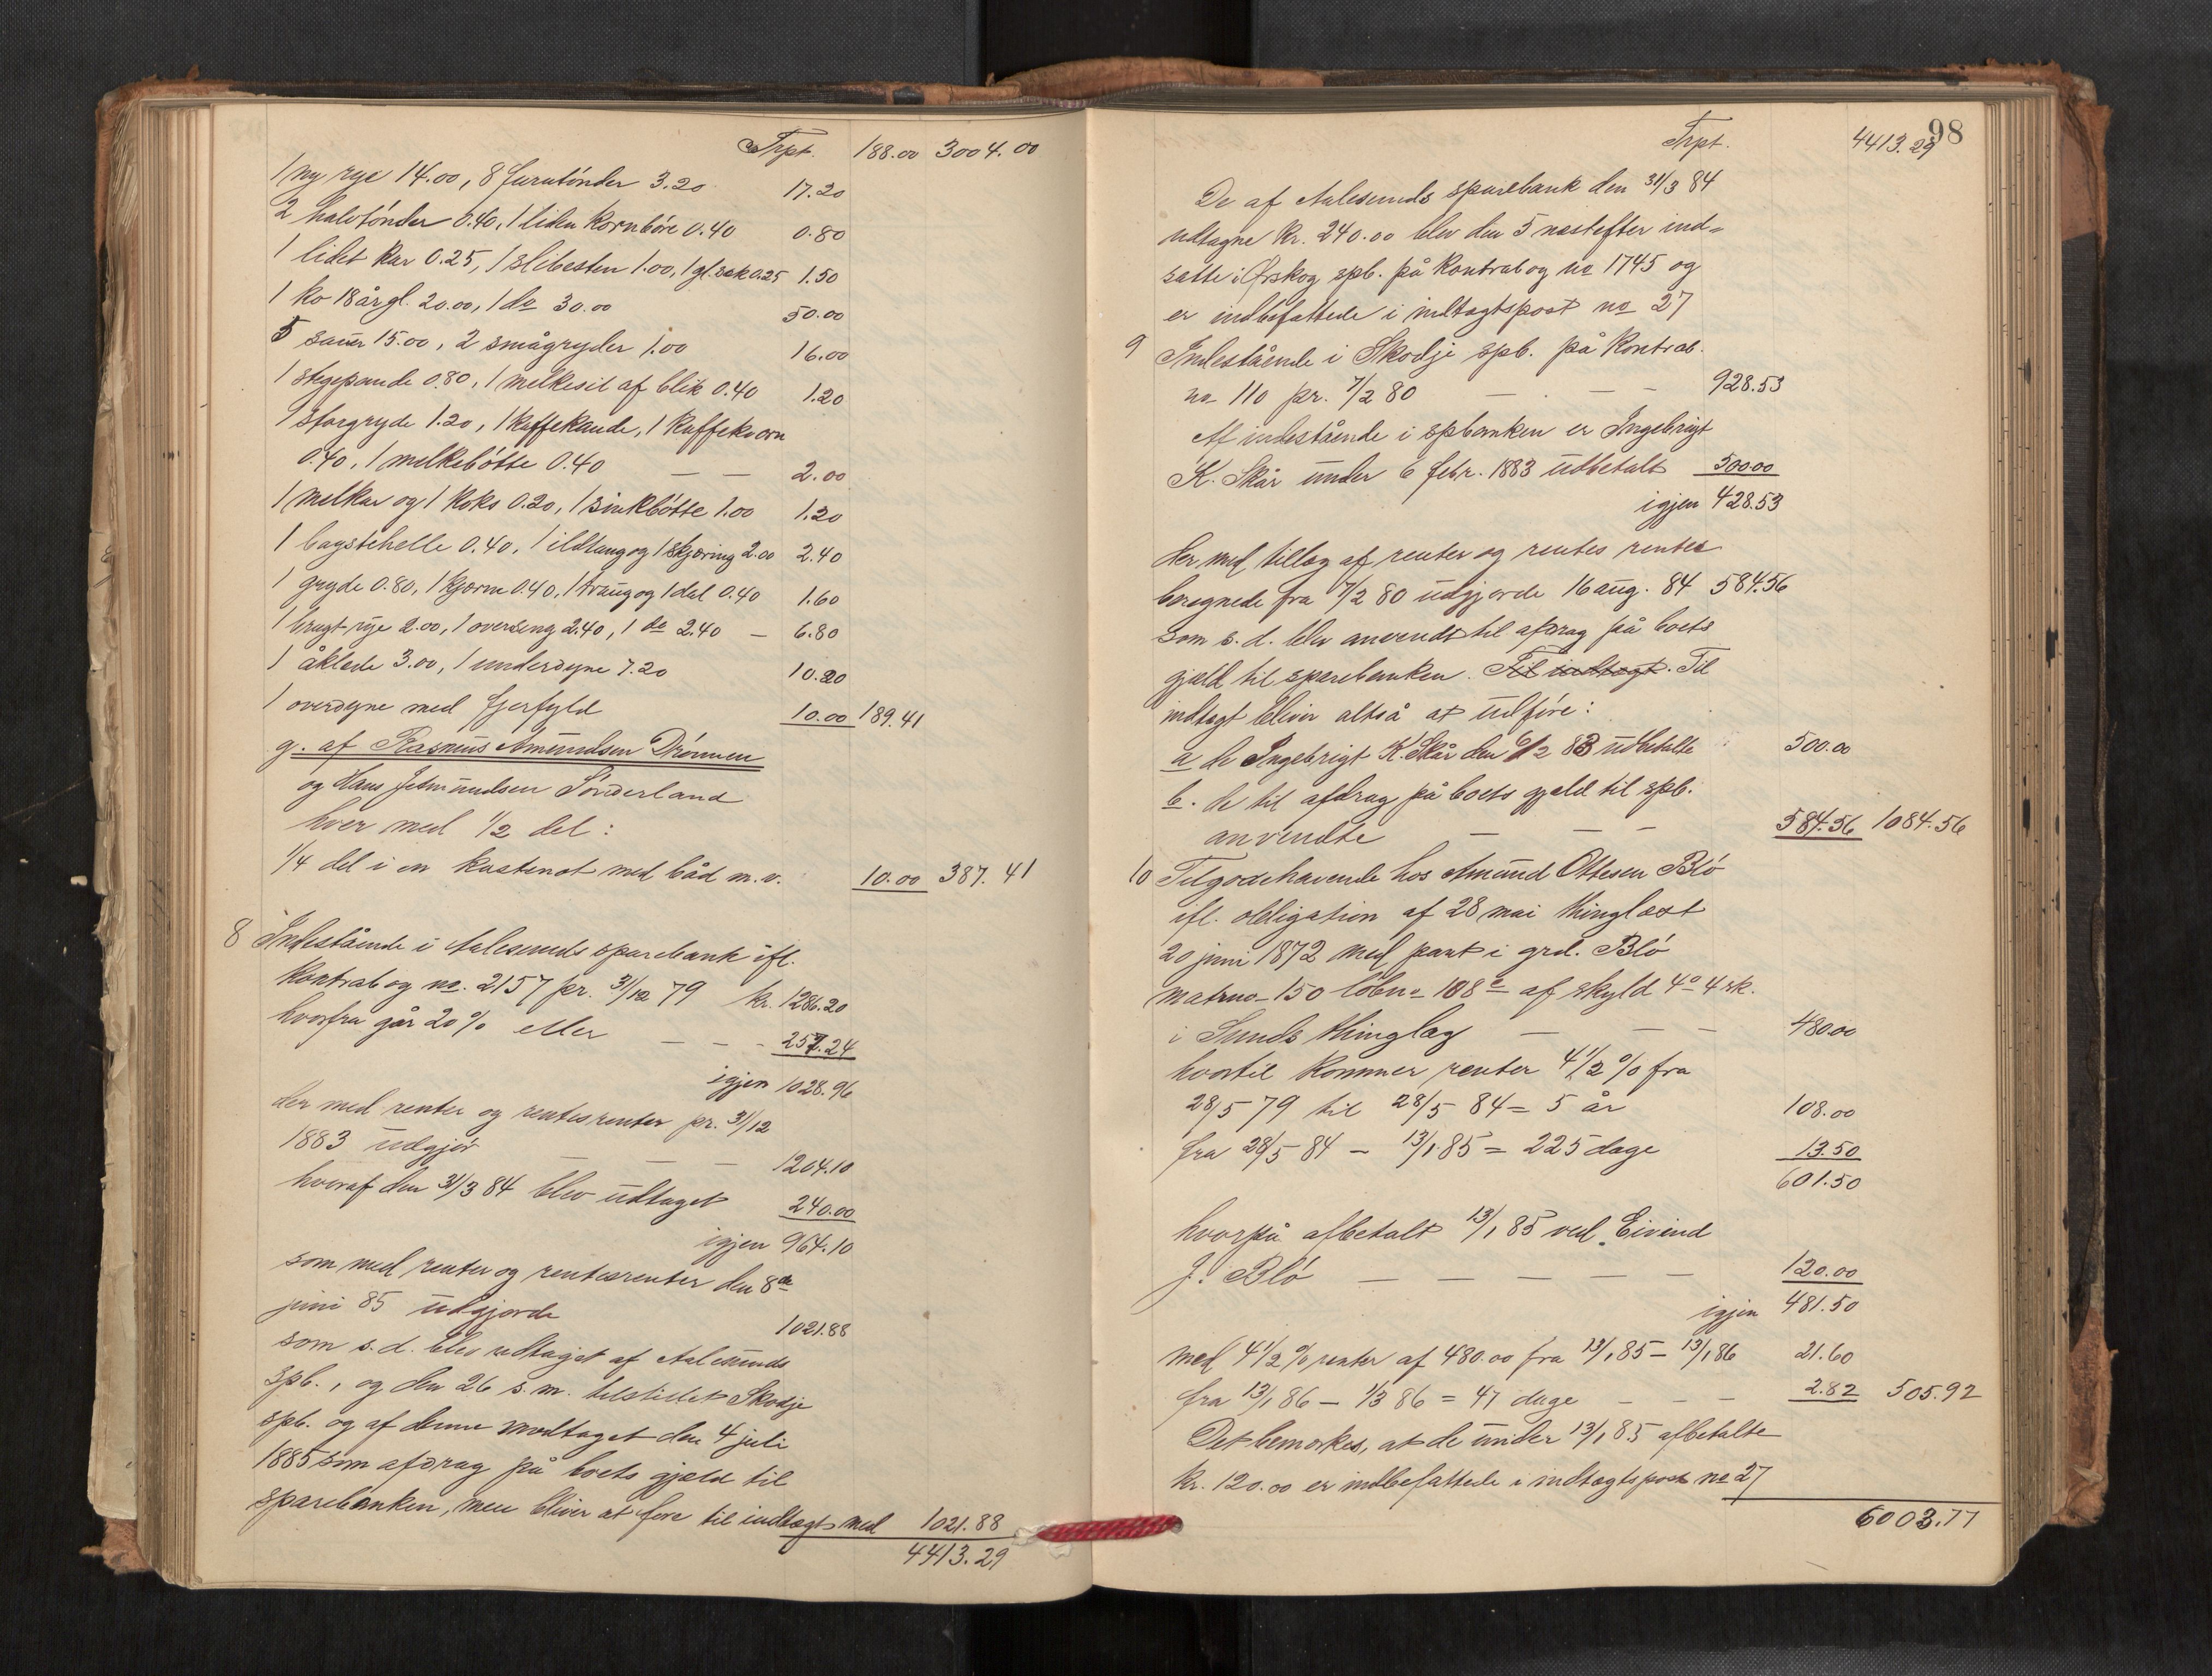 Trpt. 188.00 3004.00
1 ny rye 14.00, 8 furutönder 3.20 17.20
2 halvtönder 0.40, 1 liden kornböre 0.40 0.80
1 lidet kar 0.25, 1 slibesten 1.00, 1 gl. sæk 0.25 1.50
1 ko 18 år gl. 20.00, 1 do 30.00 50.00
5 sauer 15.00, 2 smågryder 1.00 16.00
1 stegepande 0.80, 1 melkesil af blik 0.40 1.20
1 storgryde 1.20, 1 kaffekande, 1 kaffekværn
0.40, 1 melkebötte 0.40 — — 2.00
1 melkar og 1 koks 0.20, 1 sinkbötte 1.00 1.20
1 bagstehelle 0.40, 1 ildtang og 1 skjæring 2.00 2.40
1 gryde 0.80, 1 kjærne 0.40, 1 traug og 1 dal 0.40 1.60
1 brugt rye 2.00, 1 overseng 2.40, 1 do 2.40 — 6.80
1 åklæde 3.00, 1 underdyne 7.20 10.20
1 overdyne med fjerfyld 10.00 189.41
g. af Rasmus Amundsen Drönnen
og Hans Jetmundsen Sönderland
hver med 1/2 del:
1/4 del i en kastenot med båd m.v. 10.00 387.41
8 Indestående i Aalesunds sparebank ifl.
kontrabog no. 2157 pr. 31/12 79 kr. 1286.20
hvorfra går 20% eller — — - 257.24
igjen 1028.96
der med renter og rentesrenter pr. 31/12
1883 udgjör — — — 1204.10
hvoraf den 31/3 84 blev udtaget 240.00
igjen 964.10
som med renter og rentesrenter den 8de
juni 85 udgjorde 1021.88
som s.d. blev udtaget af Aalesunds
spb., og den 26 s.m. tilstillet Skodje
spb. og af denne modtaget den 4 juli
1885 som afdrag på boets gjæld til
sparebanken, men bliver at före til indtægt med 1021.88
4413.29
98
Trpt. 4413.29
De af Aalesunds sparebank den 31/3 84
udtagne kr. 240.00 blev den 5 næstefter ind-
satte i Örskog spb. på kontrabog no 1745 og
er indbefattede i indtægtspost no 27
9 Indestående i Skodje spb. på kontrab.
no 110 pr. 7/2 80 — — — 928.53
Af indestående i spbanken er Ingebrigt
K. Skår under 6 febr. 1883 udbetalt 500.00
igjen 428.53
der med tillæg af renter og rentes renter
beregnede fra 7/2 80 udgjorde 16 aug. 84 584.56
som s.d. blev anvendt til afdrag på boets
gjæld til sparebanken. Til indtægt. Til
indtægt bliver altså at udföre:
a de Ingebrigt K. Skår den 6/2 83 udbetalte 500.00
b. de til afdrag på boets gjæld til spb.
anvendte — — — 584.56 1084.56
10 Tilgodehavende hos Amund Ottesen Blö
ifl. obligation af 28 mai thinglæst
20 juni 1872 med pant i grd. Blö
matrno 150 löbno 108c af skyld 4o 4 sk.
i Sunds thinglag — — — 480.00
hvortil kommer renter 4 1/2 % fra
28/5 79 til 28/5 84 = 5 år 108.00
fra 28/5 84 - 13/1 85 = 225 dage 13.50
601.50
hvorpå afbetalt 13/1 85 ved Eivind
J. Blö — — — — — 120.00
igjen 481.50
med 4 1/2 % renter af 480.00 fra 13/1 85 - 13/1 86 21.60
fra 13/1 86 - 1/3 86 = 47 dage - - - 2.82 505.92
Det bemærkes, at de under 13/1 85 afbetalte
kr. 120.00 er indbefattede i indtægtspost no 27
6003.77